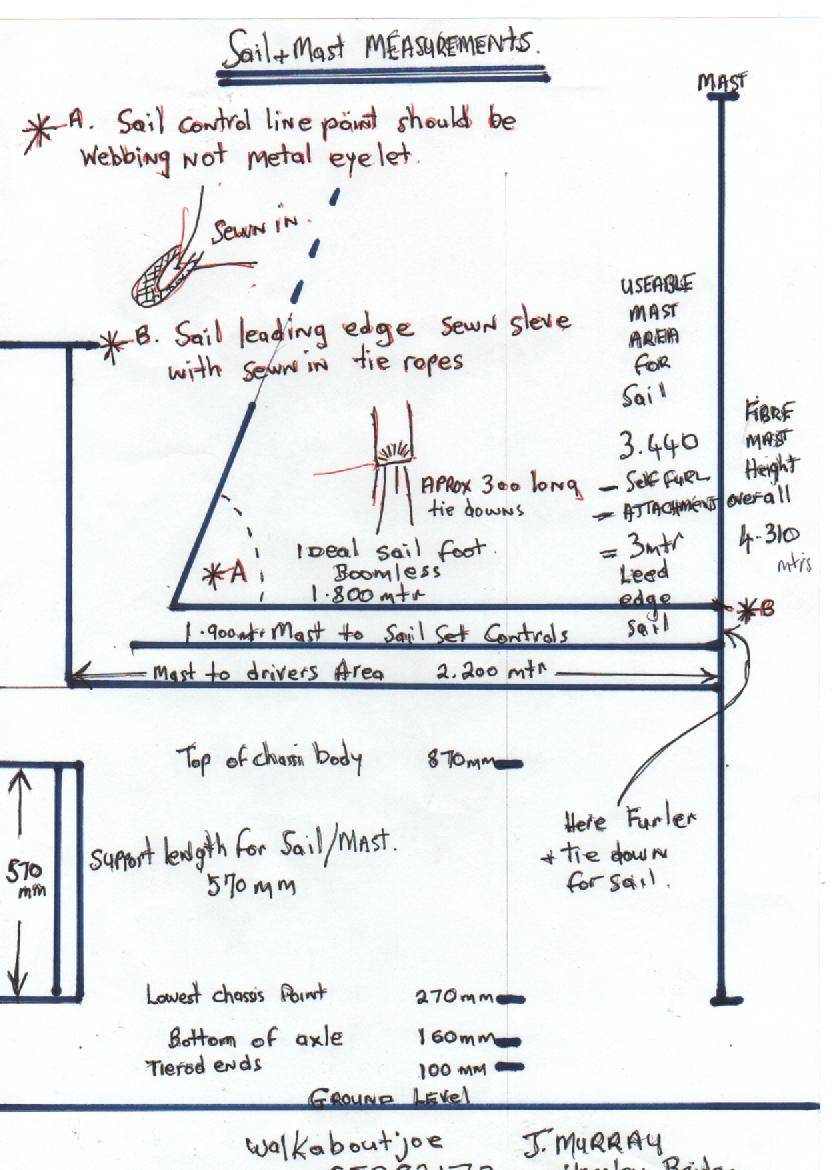 Sail + Mast MEASUREMENTS.
MAST
A. Sail control line point should be
Webbing NOT metal eyelet.
Sewn in.
B. Sail leading edge sewn sleve
with sewn in tie ropes
USEABLE
MAST
AREA
FOR
Sail
3.440
- Self FURL
= ATTACHMENT
= 3mtr
Leed
edge
sail
FIBRE
MAST
Height
overall
4.310
mtrs
APROX 300 long
tie downs
IDeal sail foot.
Boomless
1.800 mtr
A
B
1.900mtr Mast to Sail Set Controls
Mast to drivers Area 2.200 mtr
Top of chassi body 870mm
Here Furler
+ tie down
for sail.
Support length for Sail/MAST.
570 mm
570
mm
Lowest chassis Point 270mm
Bottom of axle 160mm
Tierod ends 100 mm
GROUND LEVEL
Walkaboutjoe J. MURRAY